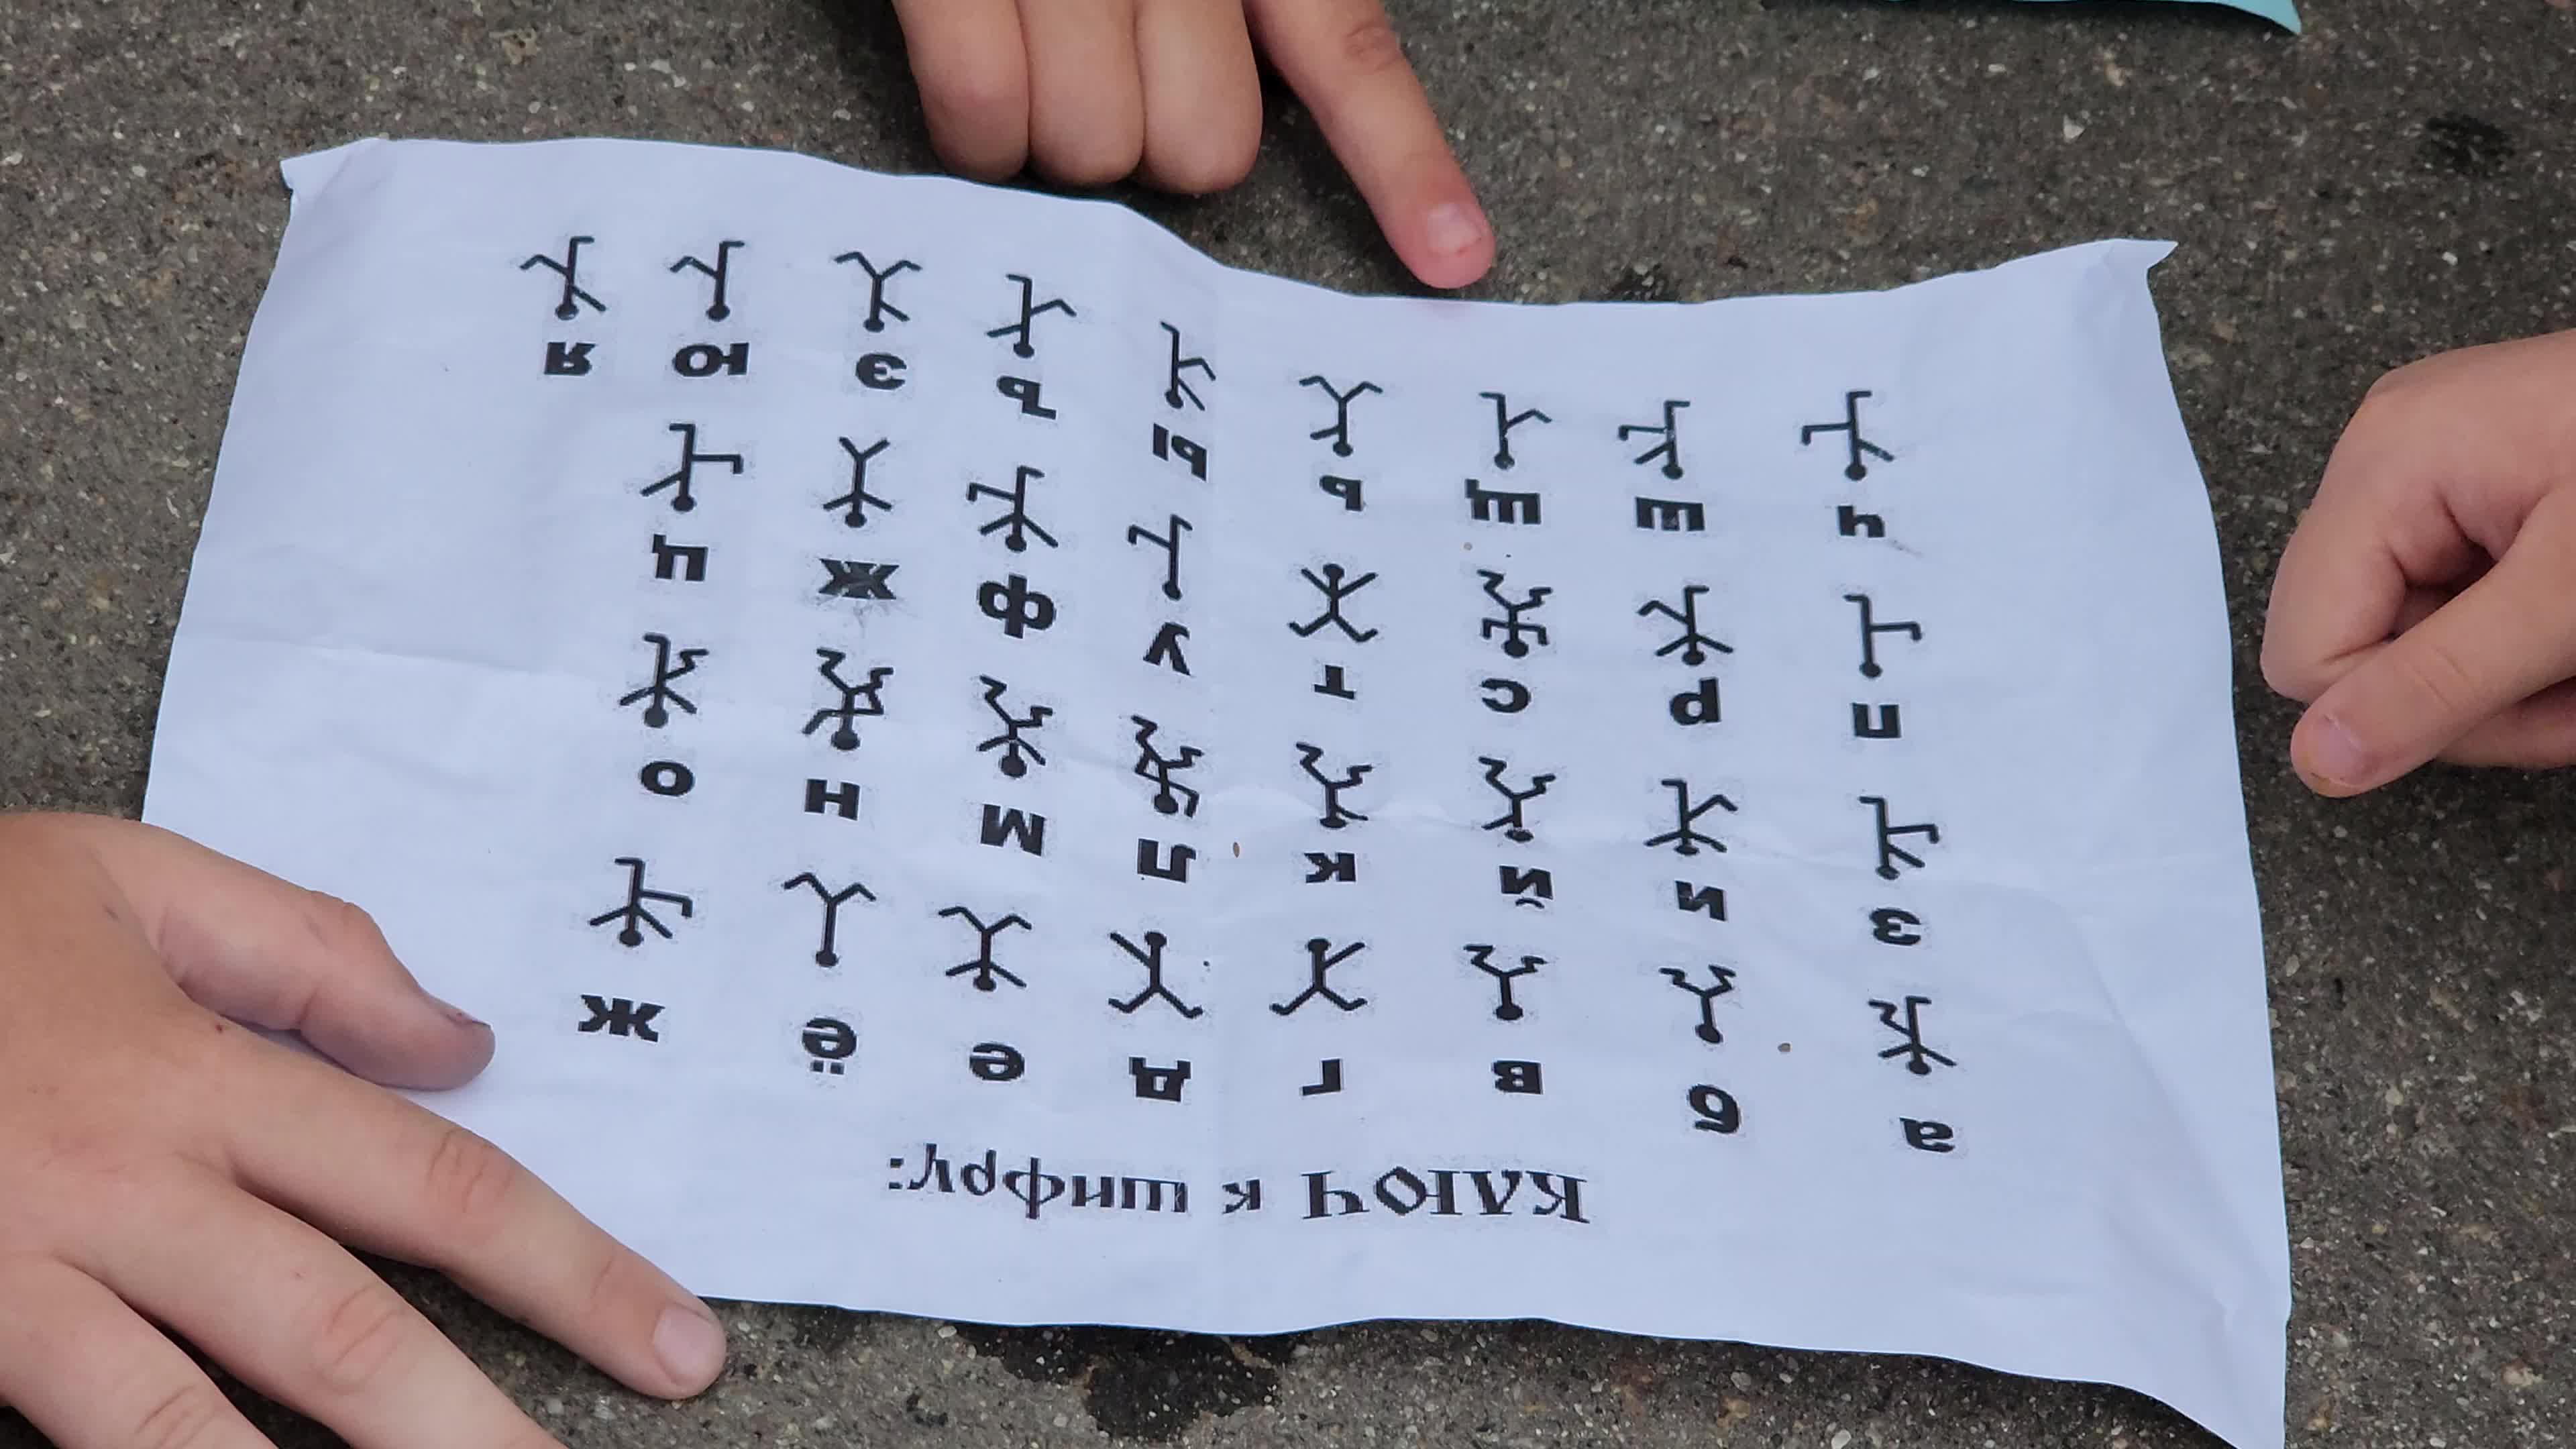 КЛЮЧ к шифру:
а б в г д е ё ж
з и й к л м н о
п р с т у ф х ц
ч ш щ ь ы ъ э ю я